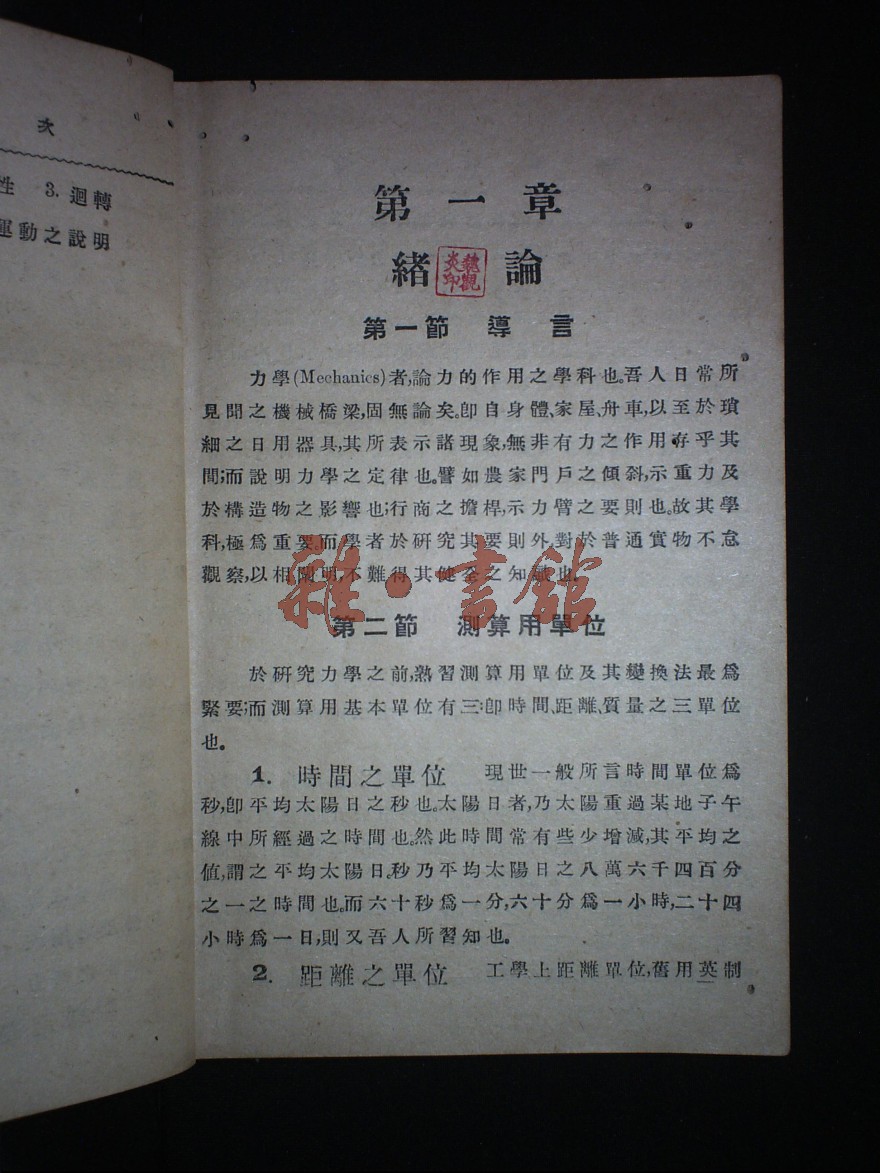 次
性 3. 迴轉
運動之說明
第一章
緒論
魏觀
炎印
第一節 導言
力學(Mechanics)者,論力的作用之學科也。吾人日常所
見聞之機械橋梁,固無論矣。卽自身體、家屋、舟車,以至於瑣
細之日用器具,其所表示諸現象,無非有力之作用存乎其
間;而說明力學之定律也。譬如農家門戶之傾斜,示重力及
於構造物之影響也;行商之擔桿,示力臂之要則也。故其學
科,極爲重要。而學者於研究其要則外,對於普通實物不怠
觀察,以相闡明,不難得其健全之知識也。
雅·書館
第二節 測算用單位
於研究力學之前,熟習測算用單位及其變換法最爲
緊要;而測算用基本單位有三:卽時間、距離、質量之三單位
也。
1. 時間之單位 現世一般所言時間單位爲
秒,卽平均太陽日之秒也。太陽日者,乃太陽重過某地子午
線中所經過之時間也。然此時間常有些少增減,其平均之
値,謂之平均太陽日。秒乃平均太陽日之八萬六千四百分
之一之時間也。而六十秒爲一分,六十分爲一小時,二十四
小時爲一日,則又吾人所習知也。
2. 距離之單位 工學上距離單位,舊用英制